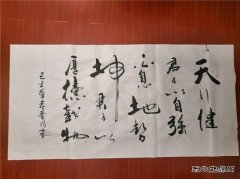 天行健
君子以自强
不息地势
坤君子以
厚德载物